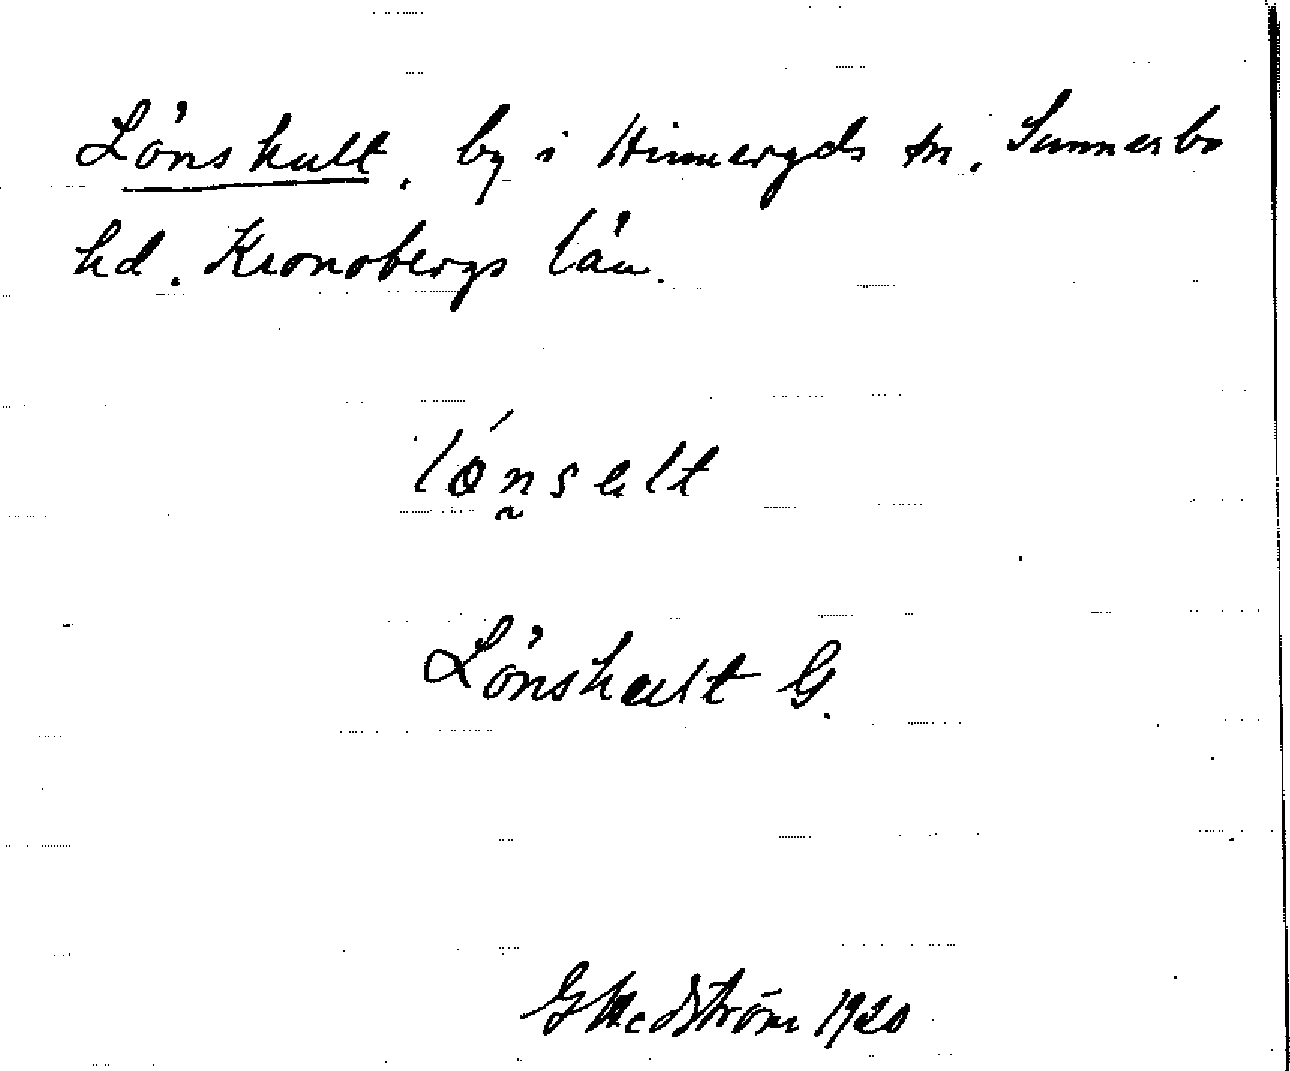 Lönshult, by i Hinneryds sn, Sunnerbo
hd. Kronobergs län.
lǿnselt
Lönshult G.
G Hedström 1920